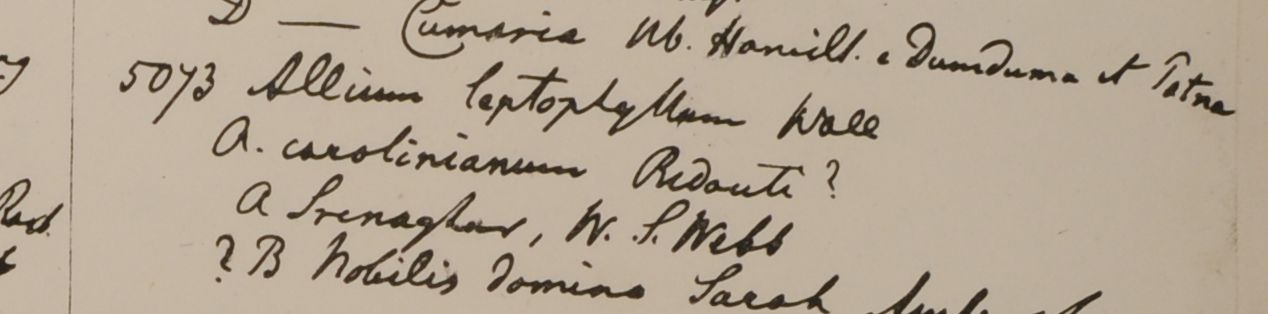 D — Cumaria Hb. Hamilt. e Dumduma et Patna
5073 Allium leptophyllum Wall
A. carolinianum Redouté ?
A Srenaghur, W. S. Webb
? B Nobilis domina Sarah